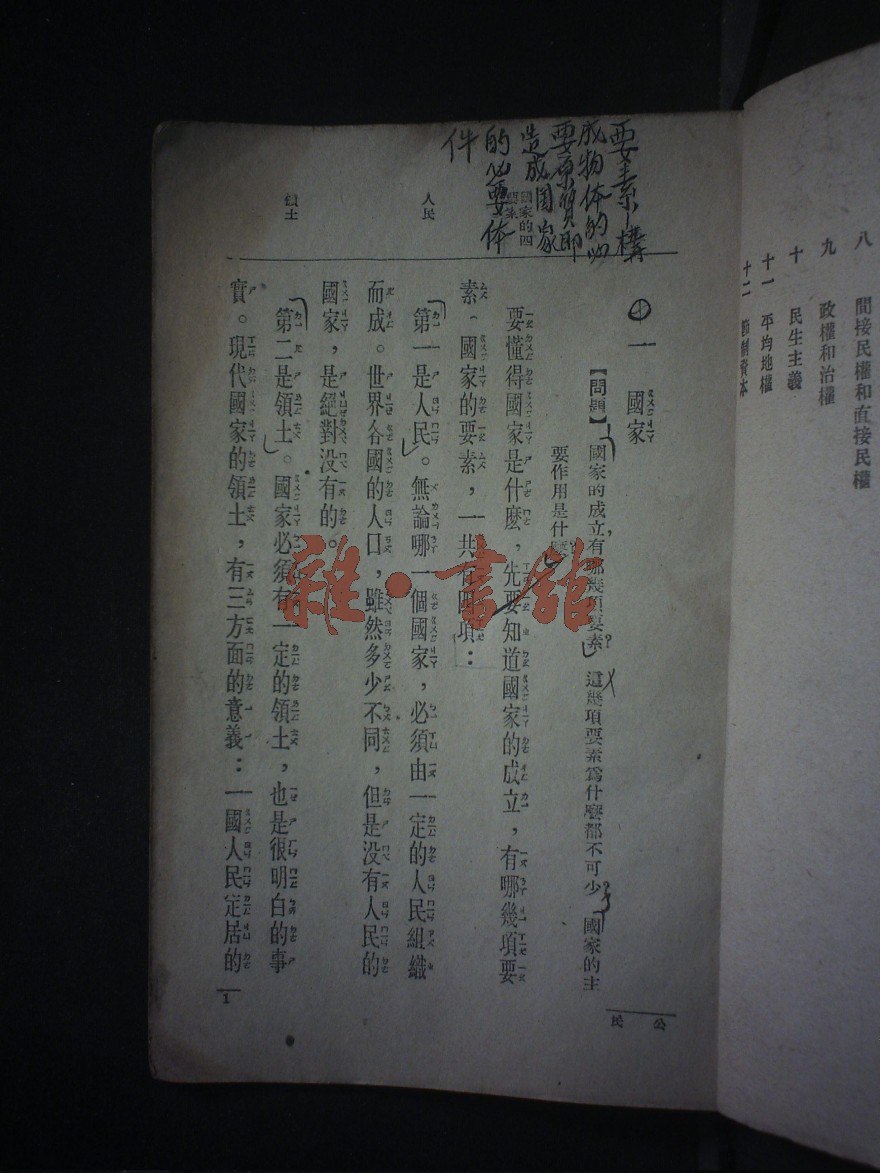 八 間接民權和直接民權
九 政權和治權
十 民生主義
十一 平均地權
十二 節制資本
公民
一 國家
【問題】國家的成立有哪幾項要素?這幾項要素爲什麼都不可少?國家的主
要作用是什麼
要懂得國家是什麼,先要知道國家的成立,有哪幾項要
素。國家的要素,一共有四項:
第一是人民。無論哪一個國家,必須由一定的人民組織
而成。世界各國的人口,雖然多少不同,但是没有人民的
國家,是絕對没有的。
第二是領土。國家必須有一定的領土,也是很明白的事
實。現代國家的領土,有三方面的意義:一國人民定居的
1
國家的四
要素
人民
領土
要素構
成物体的必
要原質即
造成国家
的必要体
件
雜·書舘